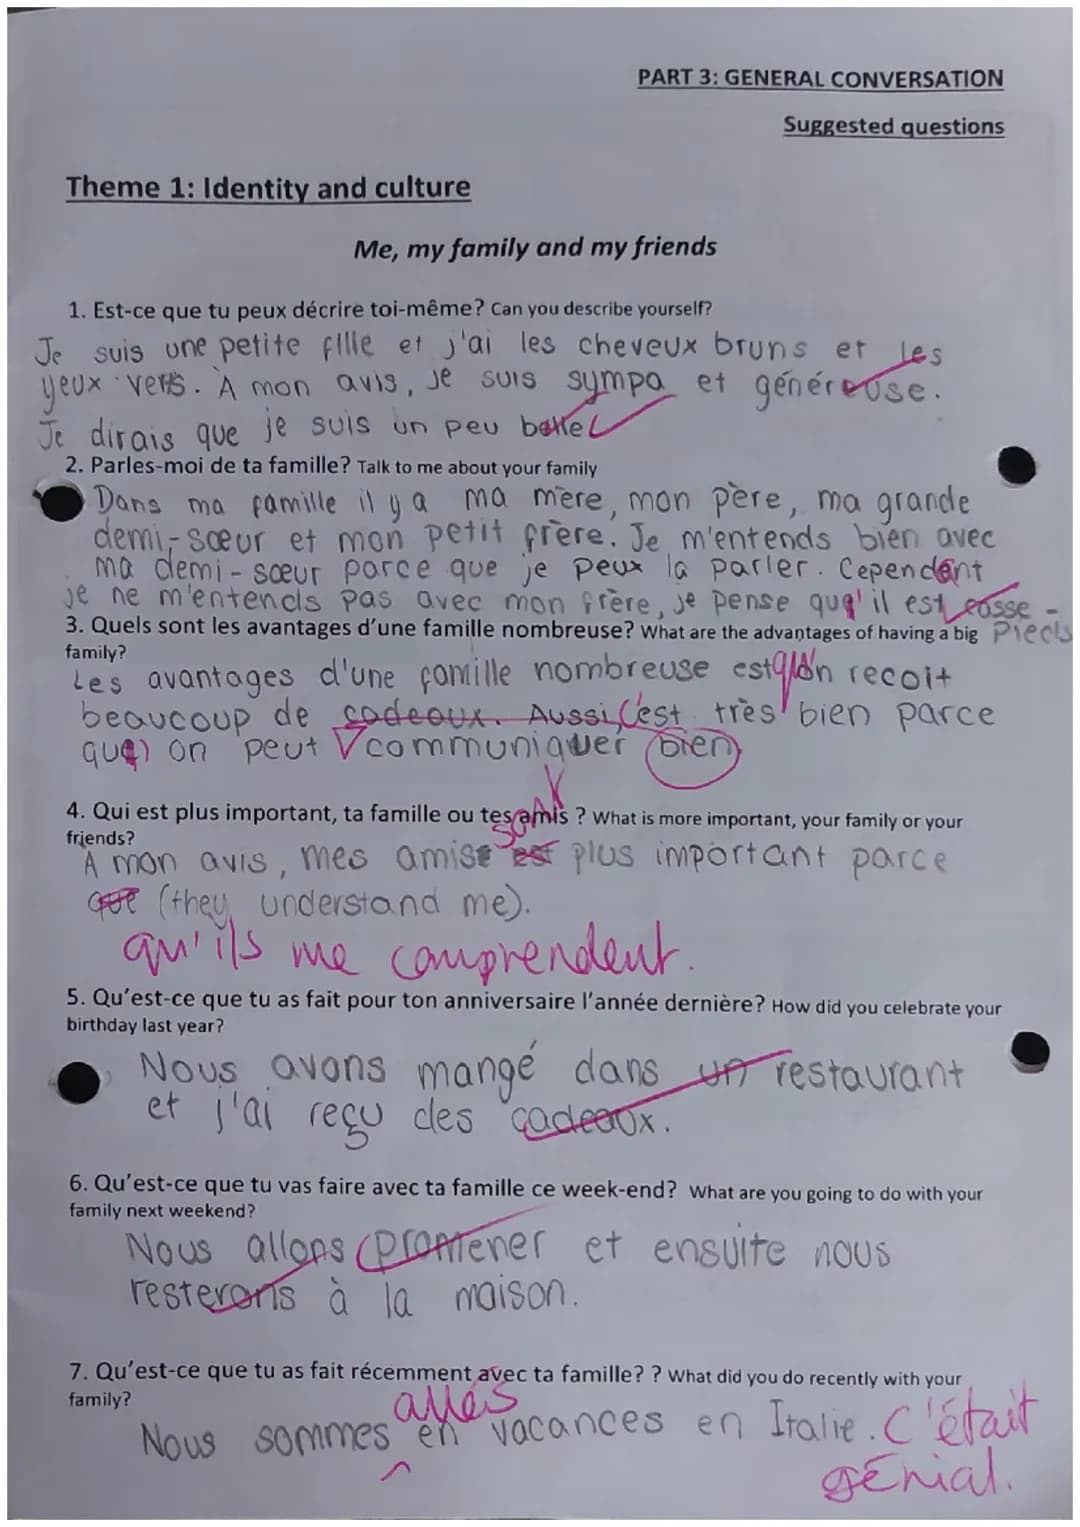 PART 3: GENERAL CONVERSATION
Suggested questions
Theme 1: Identity and culture
Me, my family and my friends
1. Est-ce que tu peux décrire toi-même? Can you describe yourself?
Je suis une petite fille et j'ai les cheveux bruns et les
yeux verts. À mon avis, je suis sympa et généreuse.
Je dirais que je suis un peu belle
2. Parles-moi de ta famille? Talk to me about your family
Dans ma famille il y a ma mère, mon père, ma grande
demi-sœur et mon petit frère. Je m'entends bien avec
ma demi-sœur parce que je peux la parler. Cependant
je ne m'entends pas avec mon frère, je pense qu'il est casse-
3. Quels sont les avantages d'une famille nombreuse? What are the advantages of having a big pieds
family?
Les avantages d'une famille nombreuse est qu'on recoit
beaucoup de cadeaux. Aussi, C'est très bien parce
que on peut communiquer bien
4. Qui est plus important, ta famille ou tes amis ? What is more important, your family or your
friends?
sont
À mon avis, mes amis est plus important parce
que (they understand me).
qu'ils me comprendent.
5. Qu'est-ce que tu as fait pour ton anniversaire l'année dernière? How did you celebrate your
birthday last year?
Nous avons mangé dans un restaurant
et j'ai reçu des cadeaux.
6. Qu'est-ce que tu vas faire avec ta famille ce week-end? What are you going to do with your
family next weekend?
Nous allons promener et ensuite nous
resterons à la maison.
7. Qu'est-ce que tu as fait récemment avec ta famille? ? What did you do recently with your
family?
allés
Nous sommes en vacances en Italie. C'était
génial.